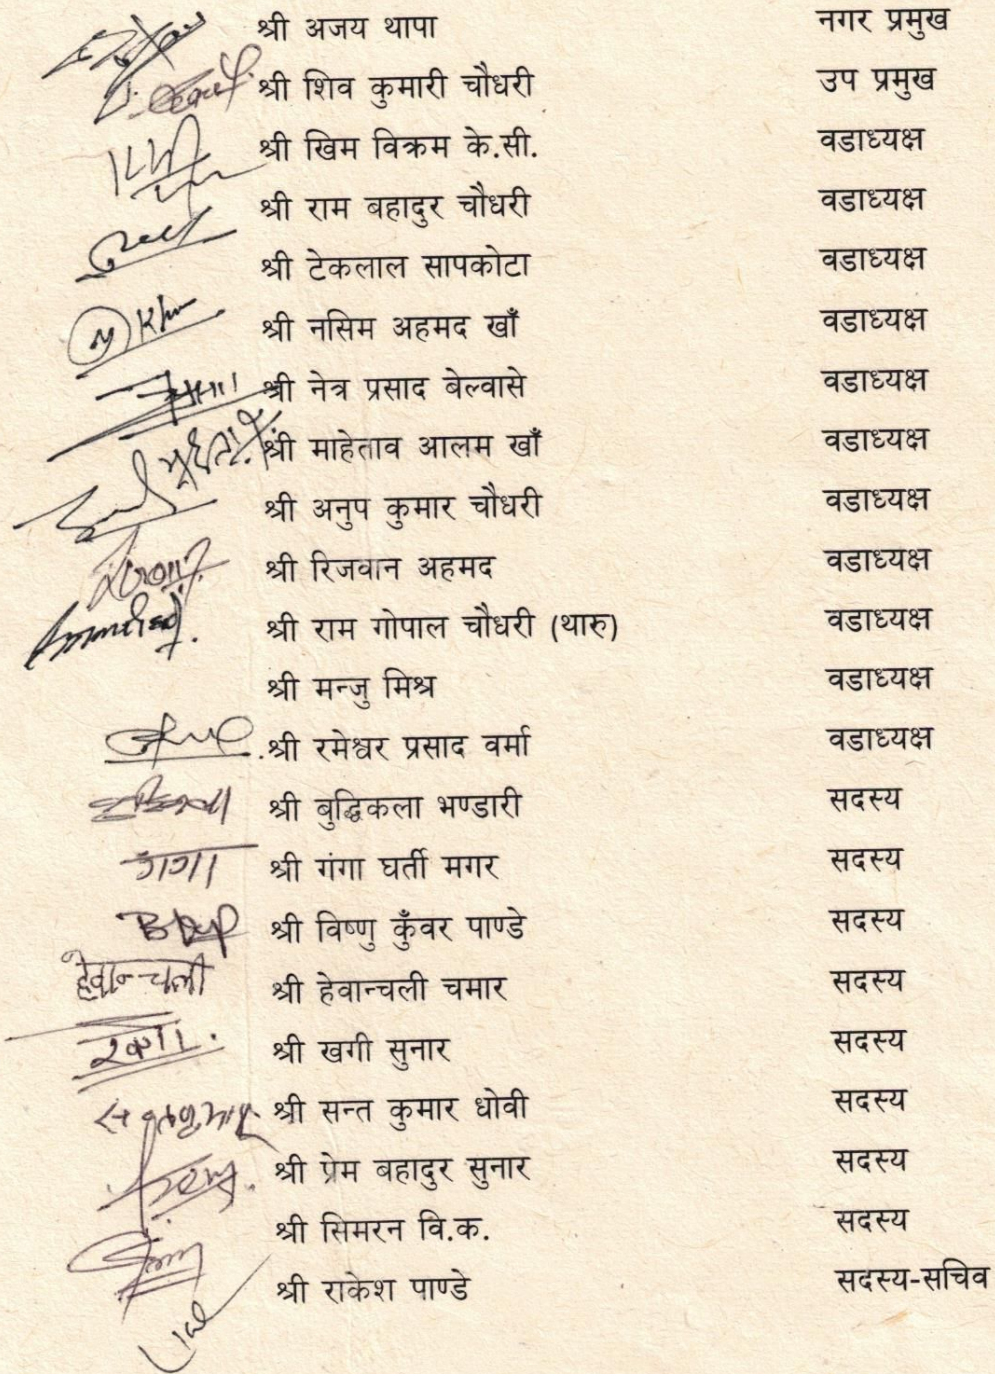 श्री अजय थापा नगर प्रमुख
श्री शिव कुमारी चौधरी उप प्रमुख
श्री खिम विक्रम के.सी. वडाध्यक्ष
श्री राम बहादुर चौधरी वडाध्यक्ष
श्री टेकलाल सापकोटा वडाध्यक्ष
श्री नसिम अहमद खाँ वडाध्यक्ष
श्री नेत्र प्रसाद बेल्वासे वडाध्यक्ष
श्री माहेताव आलम खाँ वडाध्यक्ष
श्री अनुप कुमार चौधरी वडाध्यक्ष
श्री रिजवान अहमद वडाध्यक्ष
श्री राम गोपाल चौधरी (थारु) वडाध्यक्ष
श्री मन्जु मिश्र वडाध्यक्ष
श्री रमेश्वर प्रसाद वर्मा वडाध्यक्ष
श्री बुद्धिकला भण्डारी सदस्य
श्री गंगा घर्ती मगर सदस्य
श्री विष्णु कुँवर पाण्डे सदस्य
हेवान्चली श्री हेवान्चली चमार सदस्य
श्री खगी सुनार सदस्य
श्री सन्त कुमार धोवी सदस्य
श्री प्रेम बहादुर सुनार सदस्य
श्री सिमरन वि.क. सदस्य
श्री राकेश पाण्डे सदस्य-सचिव